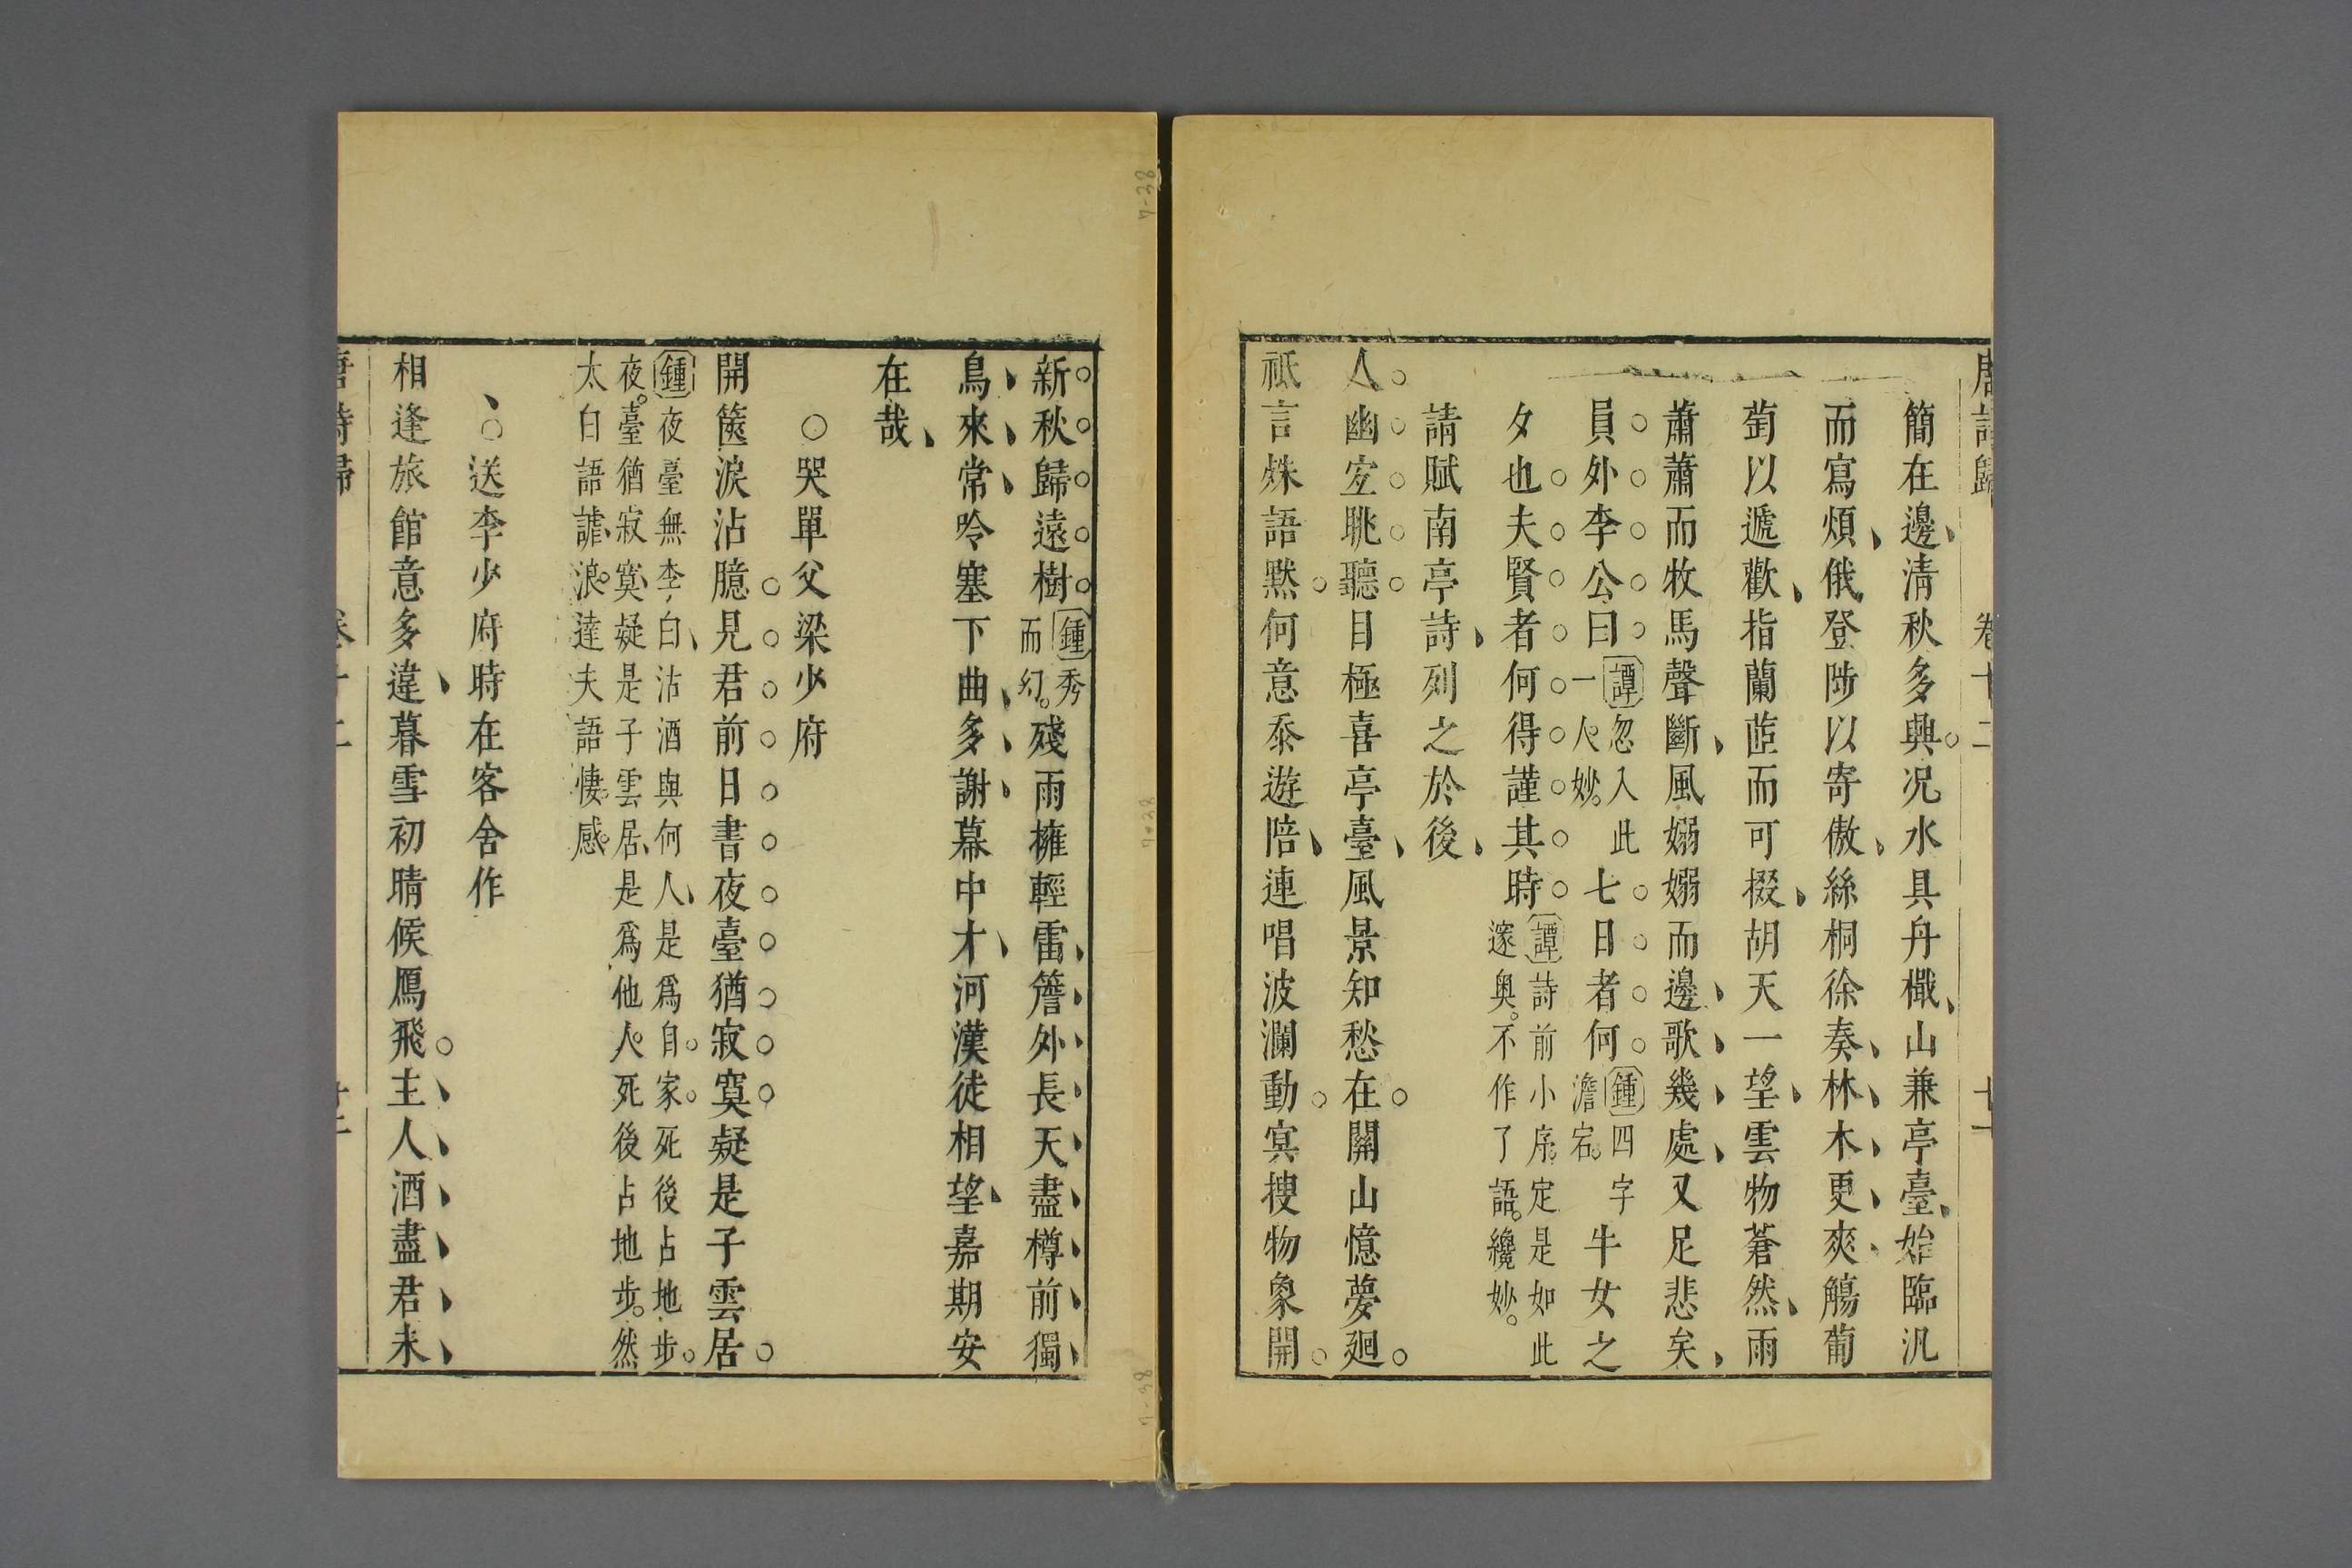 唐詩歸 卷十二 七十一
簡在邊清秋多興况水具舟檝山兼亭臺始臨汎
而寫煩俄登陟以寄傲絲桐徐奏林木更爽觴葡
萄以遞歡指蘭茝而可掇胡天一望雲物蒼然雨
蕭蕭而牧馬聲斷風嫋嫋而邊歌幾處又足悲矣
員外李公曰譚忽入此一人妙七日者何鍾四字澹宕牛女之
夕也夫賢者何得謹其時譚詩前小序定是如此邃奥不作了語纔妙
請賦南亭詩列之於後
人幽宐眺聽目極喜亭臺風景知愁在關山憶夢廻
祇言殊語黙何意忝遊陪連唱波瀾動㝠搜物象開
新秋歸遠樹鍾秀而幻殘雨擁輕雷簷外長天盡樽前獨
鳥來常吟塞下曲多謝幕中才河漢徒相望嘉期安
在哉
○哭單父梁少府
開篋淚沾臆見君前日書夜臺猶寂寞疑是子雲居
鍾夜臺無李白沽酒與何人是爲自家死後占地步
夜臺猶寂寞疑是子雲居是爲他人死後占地步然
太白語謔浪達夫語悽感
、○送李少府時在客舍作
相逢旅館意多違暮雪初晴候鴈飛主人酒盡君未
唐詩歸 卷十二